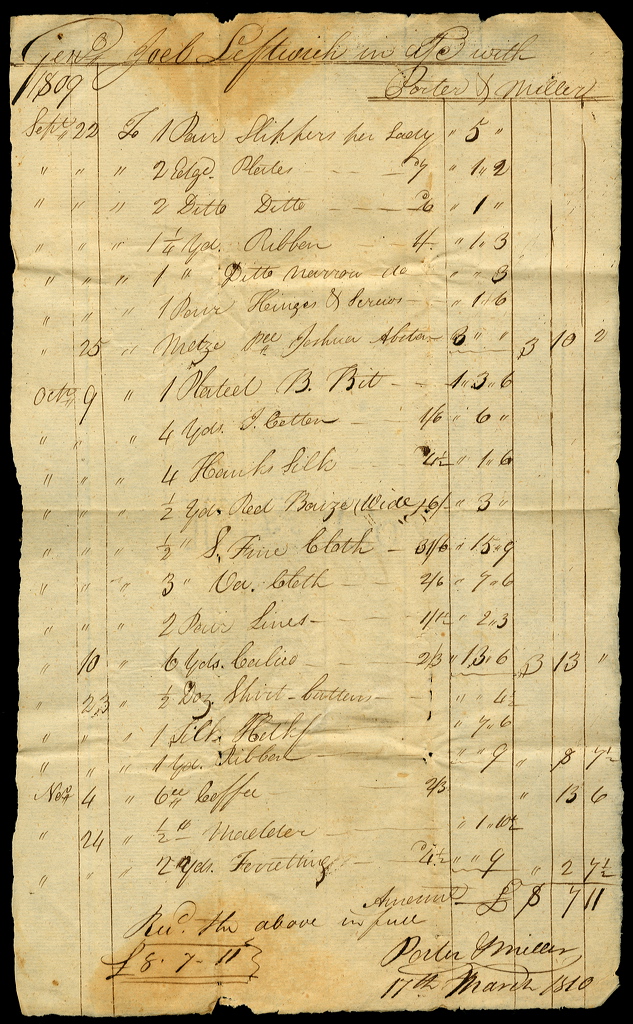 Genl. Joel Leftwich in a/c with
1809 Porter & Miller
Sept. 22 To 1 Pair Slippers per Lady " 5 "
" " " 2 Edgd. Plates 7 " 1 " 2
" " " 2 Ditto Ditto 6 " 1 "
" " " 1 1/4 Yd. Ribbon 1/. " 1 " 3
" " " 1 " Ditto narrow do " " 3
" " " 1 Pair Hinges & Screws " 1 " 6
" 25 " Joshua 3 " " 3 10 2
Octr. 9 " 1 Plated B. Bit 1 " 3 " 6
" " " 4 Yds. I. Cotton 1/6 " 6 "
" " " 4 Hanks Silk 4 1/2 " 1 " 6
" " " 1/2 Yd. Red Baize (Wide) 6/ " 3 "
" " " 1/2 " S. Fine Cloth 31/6 " 15 " 9
" " " 3 " Va. Cloth 2/6 " 7 " 6
" " " 2 Pair Lines 1/1 1/2 " 2 " 3
" 10 " 6 Yds. Calico 2/3 " 13 " 6 3 13 "
" 23 " 1/2 Doz Shirt Buttons " " 4 1/2
" " " 1 Silk Hdkf " 7 " 6
" " " 1 Yd. Ribbon " " 9 " 8 7 1/2
Nov. 4 " 6 lb Coffee 2/3 " 13 6
" 24 " 1/2 lb Madder " 1 " 10 1/2
" " " 2 Yds. Ferretting 4 1/2 " " 9 " 2 7 1/2
Amount £ 8 7 11
Recd. the above in full
£ 8 " 7 - 11
Porter & Miller
17th March 1810